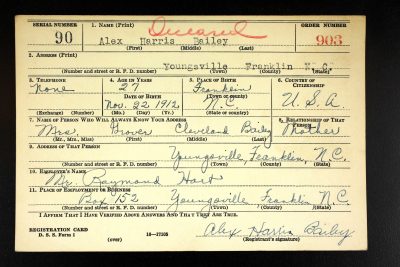 SERIAL NUMBER 1. NAME (Print) ORDER NUMBER
Deceased
90 Alex Harris Bailey 903
(First) (Middle) (Last)
2. ADDRESS (Print)
Youngsville Franklin N.C.
(Number and street or R. F. D. number) (Town) (County) (State)
3. TELEPHONE 4. AGE IN YEARS 5. PLACE OF BIRTH 6. COUNTRY OF CITIZENSHIP
None 27 Franklin
(Town or county)
DATE OF BIRTH
Nov. 22 1912 N.C. U.S.A.
(Exchange) (Number) (Mo.) (Day) (Yr.) (State or country)
7. NAME OF PERSON WHO WILL ALWAYS KNOW YOUR ADDRESS 8. RELATIONSHIP OF THAT PERSON
Mrs. Grover Cleveland Bailey Mother
(Mr., Mrs., Miss) (First) (Middle) (Last)
9. ADDRESS OF THAT PERSON
Youngsville, Franklin, N.C.
(Number and street or R. F. D. number) (Town) (County) (State)
10. EMPLOYER'S NAME
Mr. Raymond Hart
11. PLACE OF EMPLOYMENT OR BUSINESS
Box 152 Youngsville Franklin N.C.
(Number and street or R. F. D. number) (Town) (County) (State)
I AFFIRM THAT I HAVE VERIFIED ABOVE ANSWERS AND THAT THEY ARE TRUE.
REGISTRATION CARD
D. S. S. Form 1 16—17105 Alex Harris Bailey
(over) (Registrant's signature)